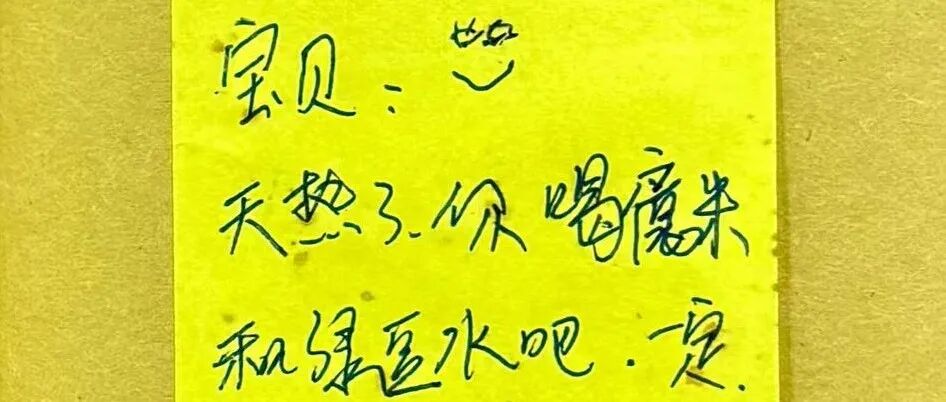 宝贝:
天热了.你喝薏米
和绿豆水吧.一定.